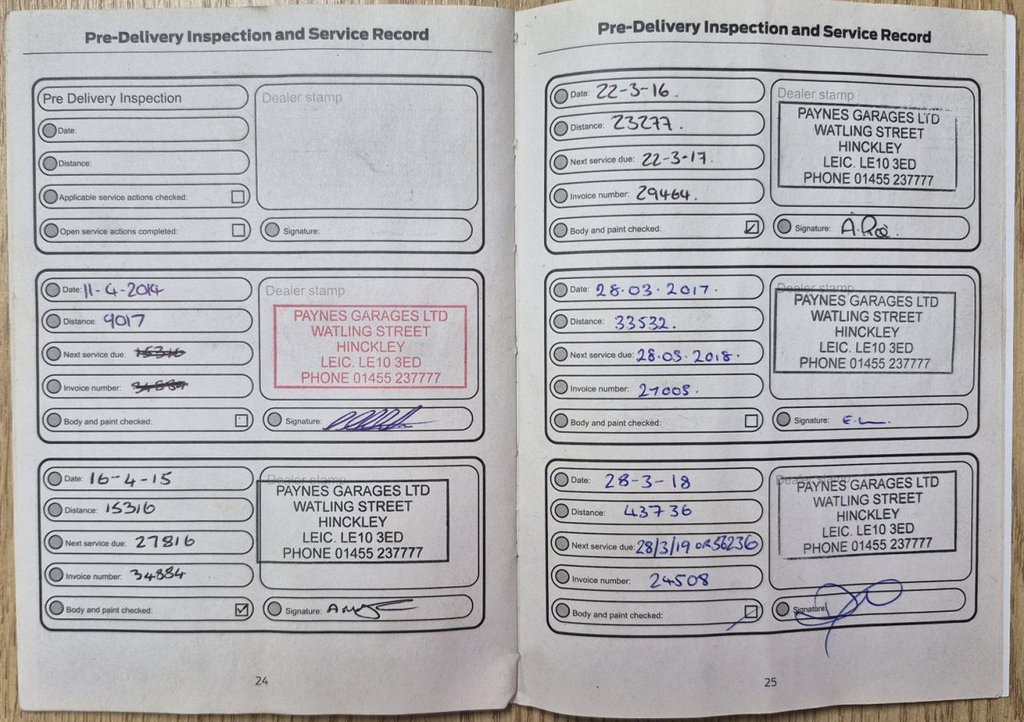 Pre-Delivery Inspection and Service Record
Pre Delivery Inspection
Dealer stamp
Date:
Distance:
Applicable service actions checked:
Open service actions completed:
Signature:
Date: 11-4-2014
Distance: 9017
Next service due: 15316
Invoice number:
Body and paint checked:
Dealer stamp
PAYNES GARAGES LTD
WATLING STREET
HINCKLEY
LEIC. LE10 3ED
PHONE 01455 237777
Signature:
Date: 16-4-15
Distance: 15316
Next service due: 27816
Invoice number: 34884
Body and paint checked:
Dealer stamp
PAYNES GARAGES LTD
WATLING STREET
HINCKLEY
LEIC. LE10 3ED
PHONE 01455 237777
Signature:
24
Pre-Delivery Inspection and Service Record
Date: 22-3-16.
Distance: 23277.
Next service due: 22-3-17.
Invoice number: 29464.
Body and paint checked:
Dealer stamp
PAYNES GARAGES LTD
WATLING STREET
HINCKLEY
LEIC. LE10 3ED
PHONE 01455 237777
Signature:
Date: 28.03.2017.
Distance: 33532.
Next service due: 28.03.2018.
Invoice number: 27005.
Body and paint checked:
Dealer stamp
PAYNES GARAGES LTD
WATLING STREET
HINCKLEY
LEIC. LE10 3ED
PHONE 01455 237777
Signature:
Date: 28-3-18
Distance: 43736
Next service due: 28/3/19 OR 56236
Invoice number: 24508
Body and paint checked:
PAYNES GARAGES LTD
WATLING STREET
HINCKLEY
LEIC. LE10 3ED
PHONE 01455 237777
Signature:
25